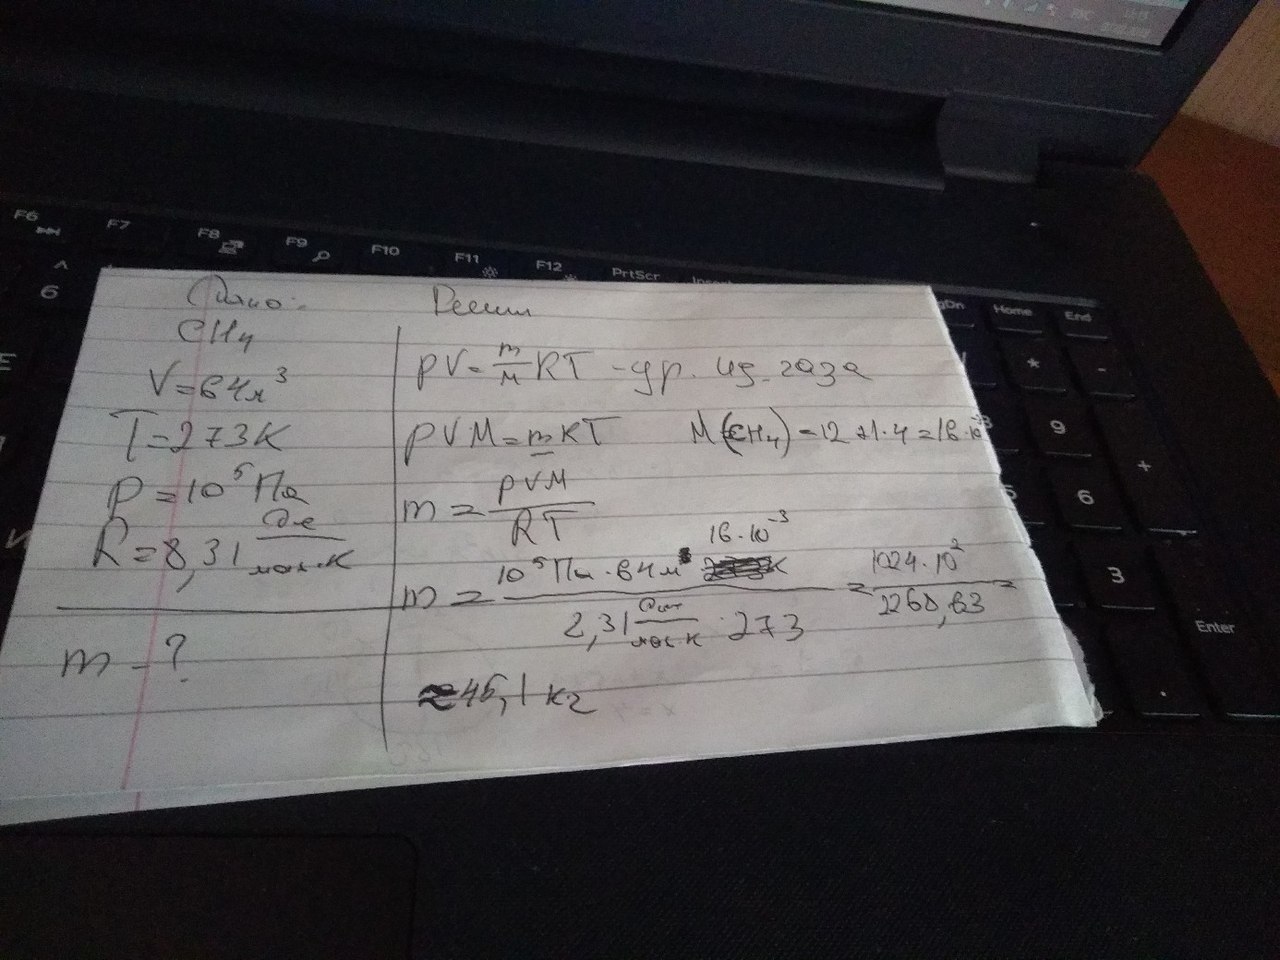 F6 F7 F8 F9 F10 F11 F12 PrtScr
Home End
6
* -
9 +
6
3
Enter
.
Дано:
CH4
V=64м³
T=273К
P=10⁵Па
R=8,31 Дж/мол·К
m-?
Решен
pV=m/M RT -ур. ид. газа
pVM=mRT M(CH4)=12+1·4=16·10⁻³
m=pVM/RT
m=10⁵Па·64м³ 16·10⁻³/2,31 Дж/мол·К·273=1024·10²/2268,63=
≈45,1 кг